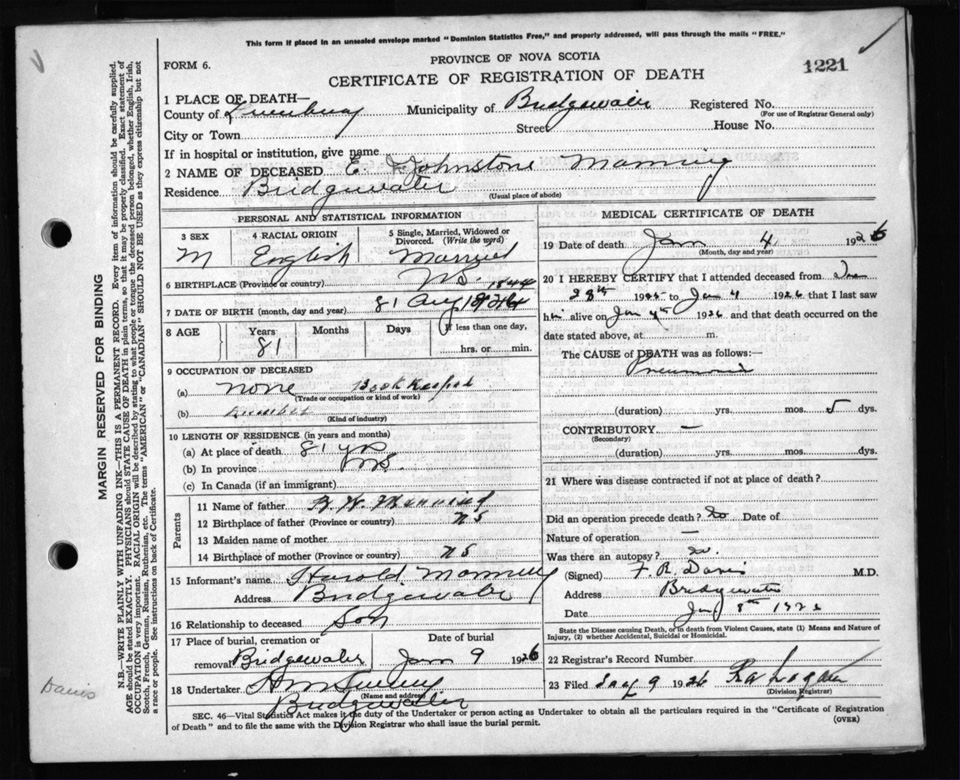 This form if placed in an unsealed envelope marked "Dominion Statistics Free," and properly addressed, will pass through the mails "FREE."
FORM 6.
PROVINCE OF NOVA SCOTIA
CERTIFICATE OF REGISTRATION OF DEATH
1221
1 PLACE OF DEATH—
County of Lunenburg Municipality of Bridgewater Registered No.
(For use of Registrar General only)
City or Town Street House No.
If in hospital or institution, give name
2 NAME OF DECEASED E. Johnstone Manning
Residence Bridgewater
(Usual place of abode)
PERSONAL AND STATISTICAL INFORMATION
3 SEX 4 RACIAL ORIGIN 5 Single, Married, Widowed or Divorced. (Write the word)
M English Married
6 BIRTHPLACE (Province or country) NS. 1844
7 DATE OF BIRTH (month, day and year) 81 Aug
8 AGE Years Months Days If less than one day,
81 hrs. or min.
9 OCCUPATION OF DECEASED
(a) none Bookkeeper
(Trade or occupation or kind of work)
(b)
(Kind of industry)
10 LENGTH OF RESIDENCE (in years and months)
(a) At place of death 81 yrs
(b) In province NS.
(c) In Canada (if an immigrant)
Parents
11 Name of father Manning
12 Birthplace of father (Province or country) NS
13 Maiden name of mother
14 Birthplace of mother (Province or country) NS
15 Informant's name Harold Manning
Address Bridgewater
16 Relationship to deceased Son
17 Place of burial, cremation or removal Bridgewater Date of burial Jan 9 1926
18 Undertaker
(Name and address)
Bridgewater
MEDICAL CERTIFICATE OF DEATH
19 Date of death Jan 4 1926
(Month, day and year)
20 I HEREBY CERTIFY that I attended deceased from Dec
28th 1925 to Jan 4 1926 that I last saw
him alive on Jan 4th 1926 and that death occurred on the
date stated above, at m.
The CAUSE of DEATH was as follows:—
Pneumonia
(duration) yrs. mos. 5 dys.
CONTRIBUTORY —
(Secondary)
(duration) yrs. mos. dys.
21 Where was disease contracted if not at place of death?
Did an operation precede death? No Date of
Nature of operation —
Was there an autopsy? no.
(Signed) F. R. Davis M.D.
Address Bridgewater
Date Jan 8th 1926
State the Disease causing Death, or in death from Violent Causes, state (1) Means and Nature of Injury, (2) whether Accidental, Suicidal or Homicidal.
22 Registrar's Record Number
23 Filed Jany 9 1926
(Division Registrar)
SEC. 46—Vital Statistics Act makes it the duty of the Undertaker or person acting as Undertaker to obtain all the particulars required in the "Certificate of Registration
of Death" and to file the same with the Division Registrar who shall issue the burial permit.
(OVER)
MARGIN RESERVED FOR BINDING
N.B.—WRITE PLAINLY WITH UNFADING INK—THIS IS A PERMANENT RECORD. Every item of information should be carefully supplied.
AGE should be stated EXACTLY. PHYSICIANS should STATE CAUSE OF DEATH in plain terms, so that it may be properly classified. Exact statement of
OCCUPATION is very important. RACIAL ORIGIN will be described by stating to what people or tongue the deceased person belonged, whether English, Irish,
Scotch, French, German, Russian, Ruthenian, etc. The terms "AMERICAN" or "CANADIAN" SHOULD NOT BE USED as they express citizenship but not
a race or people. See instructions on back of Certificate.
Davis